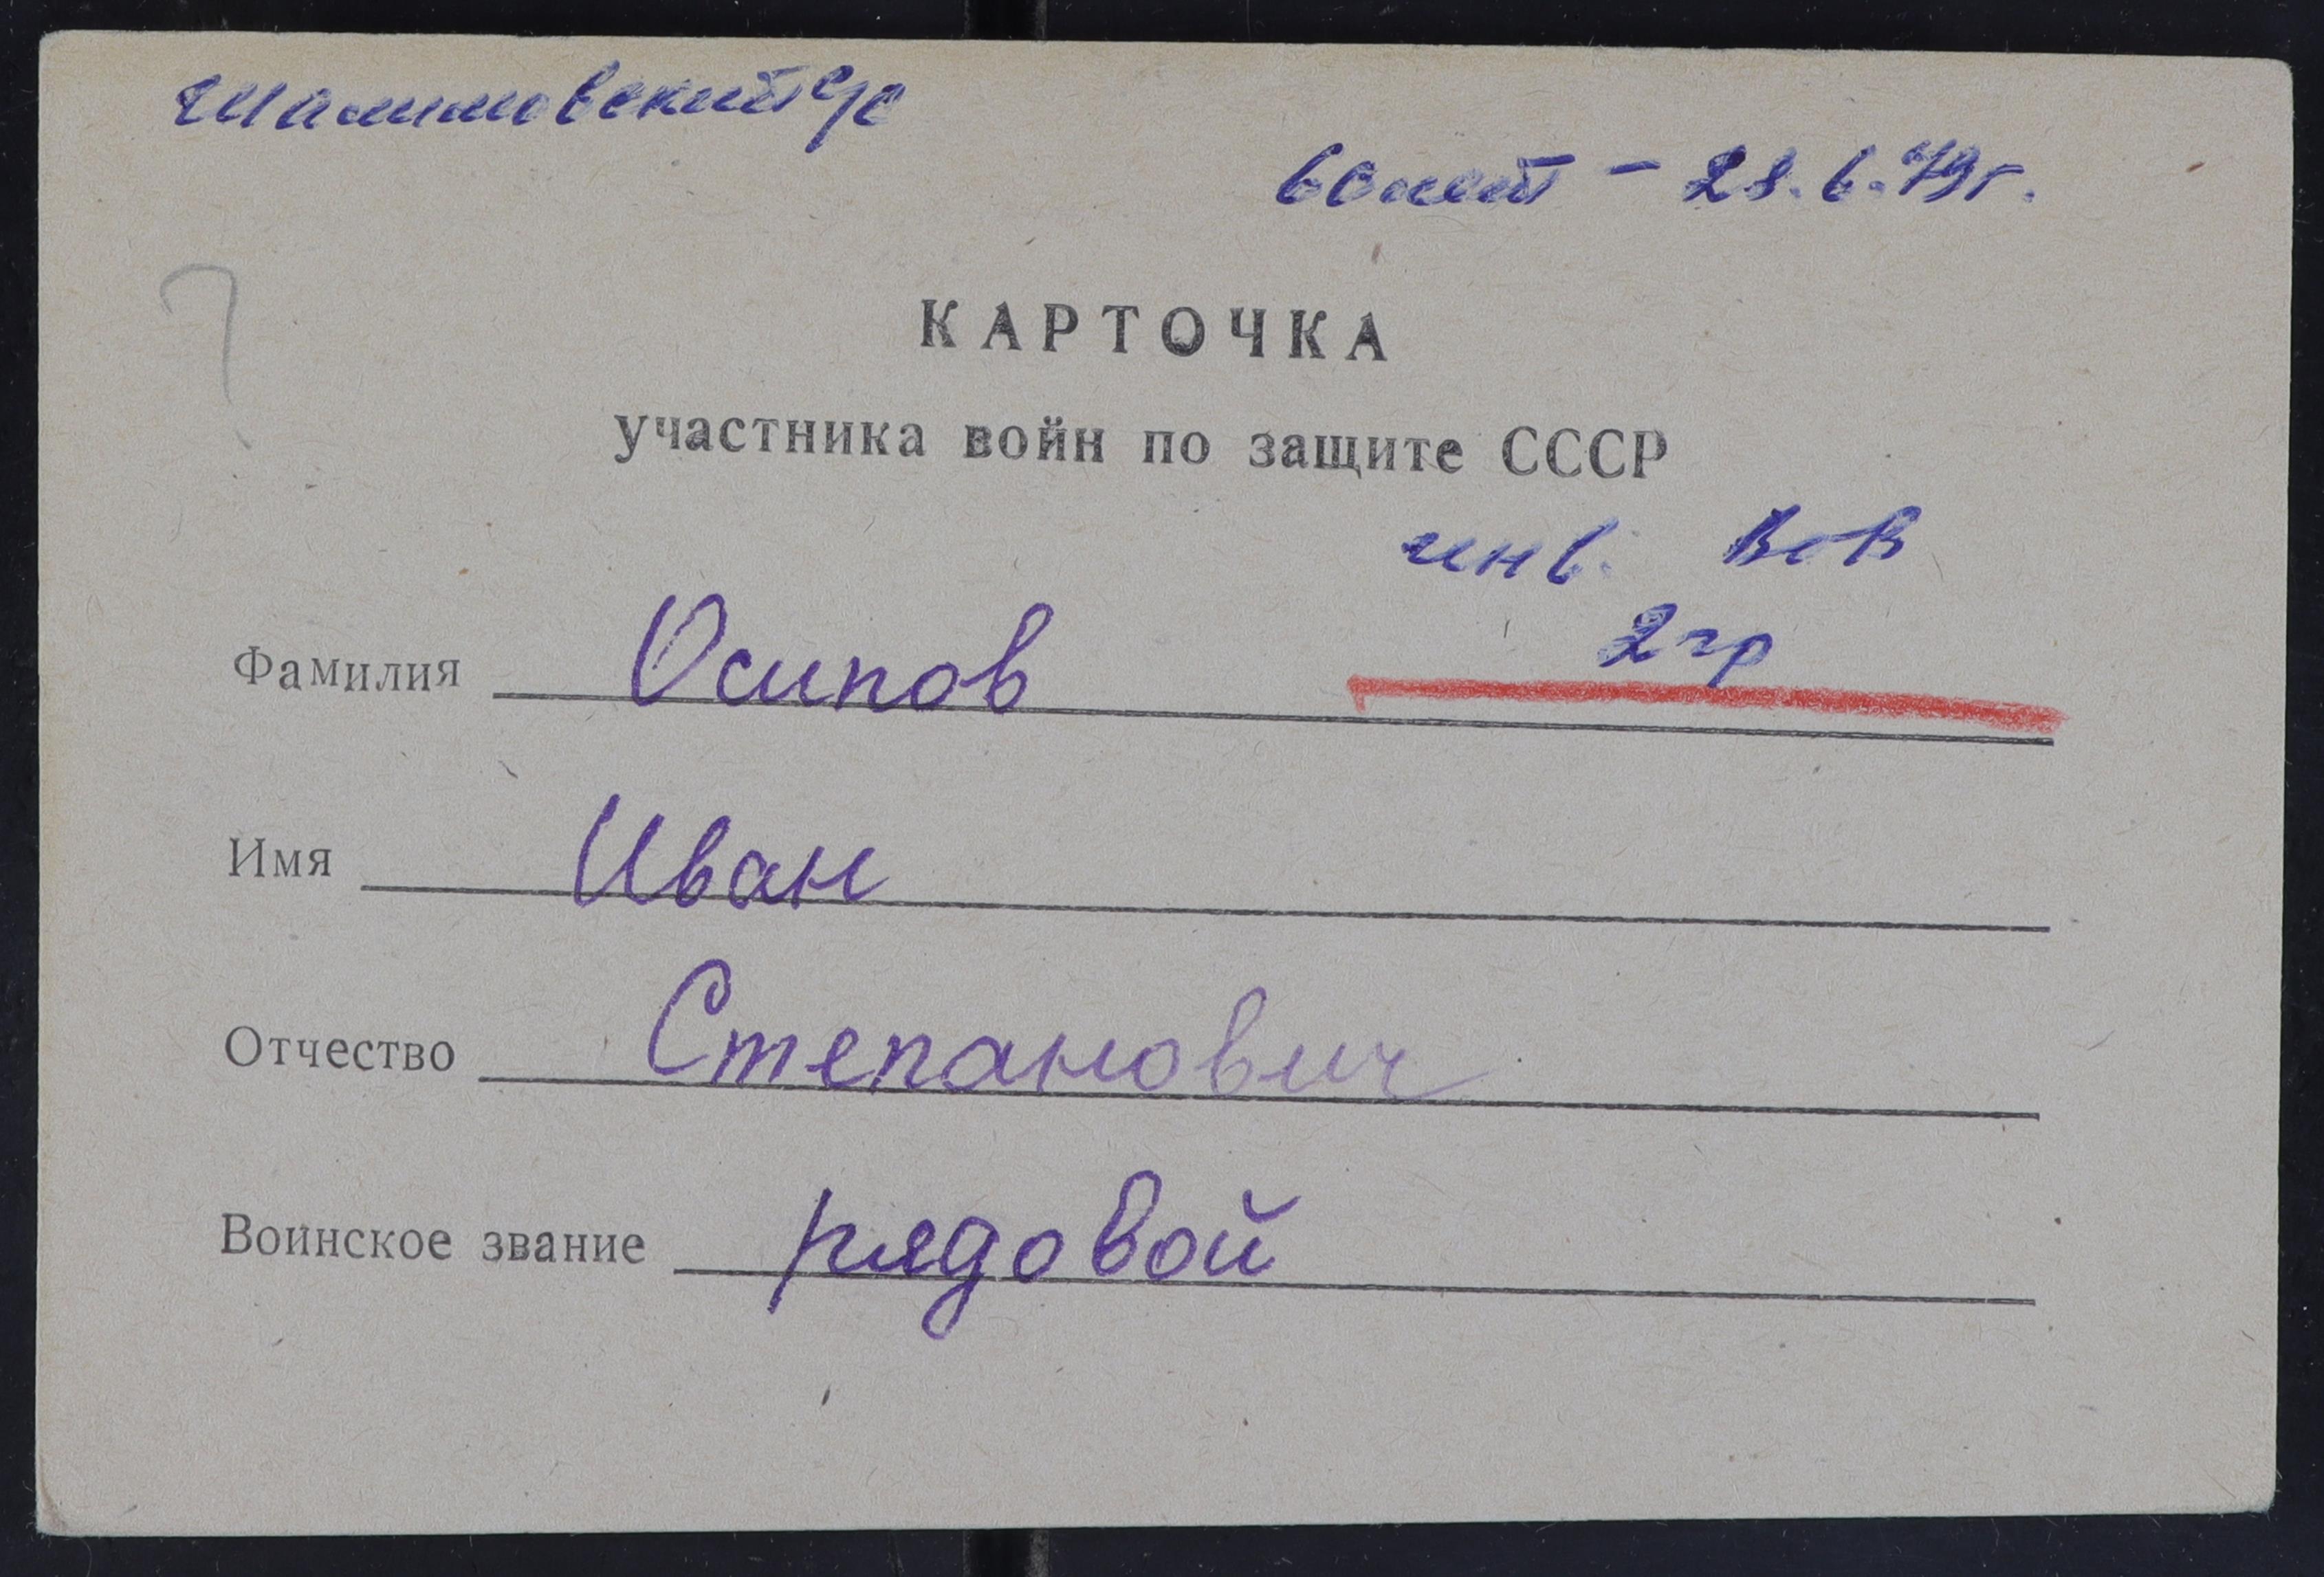 Шалимовский с/с
60 лет - 28.6.79г.
?
КАРТОЧКА
участника войн по защите СССР
инв. ВОВ
2 гр
Фамилия Осипов
Имя Иван
Отчество Степанович
Воинское звание рядовой